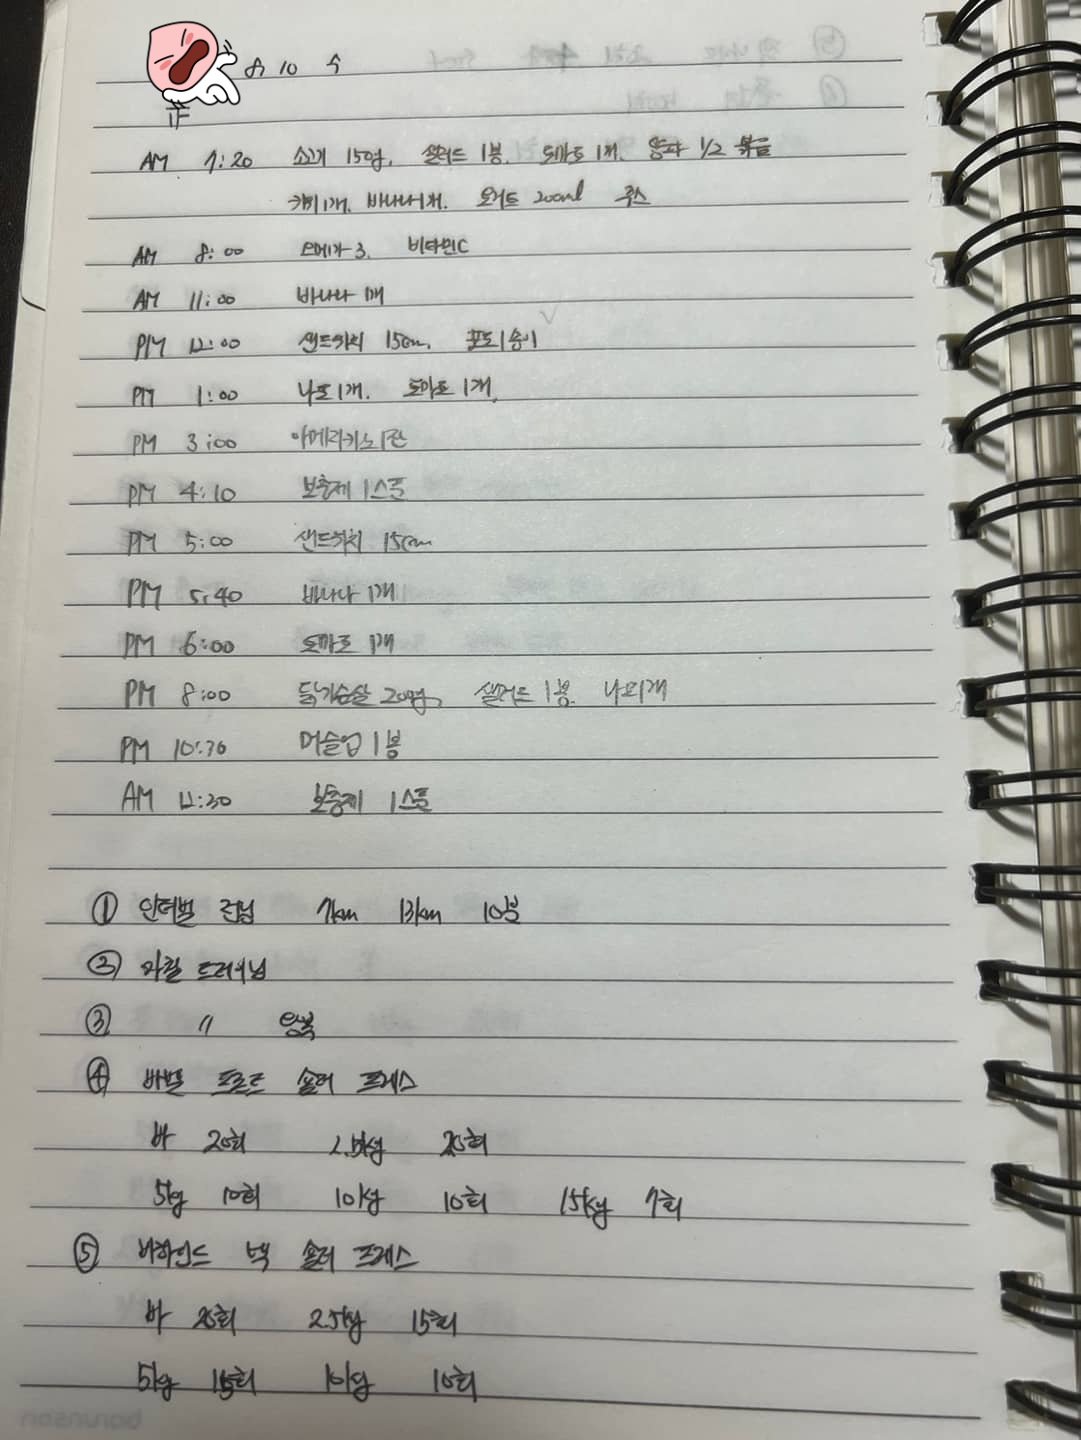 8. 10 수
正
AM 7:20 소고기 150g. 샐러드 1봉. 토마토 1개. 양파 1/2 볶음
키위 1개. 바나나 1개. 요거트 200ml 쥬스
AM 8:00 오메가 3. 비타민C
AM 11:00 바나나 1개
PM 12:00 샌드위치 15cm. 포도 1송이
PM 1:00 나또 1개. 토마토 1개.
PM 3:00 아메리카노 1잔
PM 4:10 보충제 1스푼
PM 5:00 샌드위치 15cm
PM 5:40 바나나 1개
PM 6:00 토마토 1개
PM 8:00 닭가슴살 200g, 샐러드 1봉. 나또 1개
PM 10:30 머슬업 1봉
AM 12:30 보충제 1스푼
① 인터벌 런닝 7km 13km 10분
② 마찰 트레이닝
③ 〃 왕복
④ 바벨 프론트 숄더 프레스
바 20회 2.5kg 20회
5kg 10회 10kg 10회 15kg 7회
⑤ 비하인드 넥 숄더 프레스
바 20회 2.5kg 15회
5kg 15회 10kg 10회